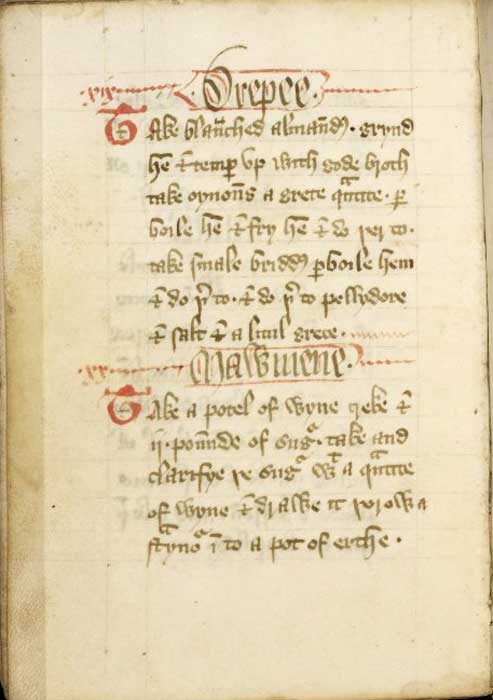 .xix. Drepee.
Take blaunched almand. grynd
he & temp vp with gode broth
take oynons a grete qtite. p
boile he & fry he & do þer to.
take smale bridd pboile hem
& do þ to. & do þ to pellydore
& salt & a litul grece.
.xx. Mawmene.
Take a potel of wyne greke &
ii. pounde of sug. take and
clarifye þe sug wt a qtite
of wyne & drawe it þorow a
stynor in to a pot of erthe.